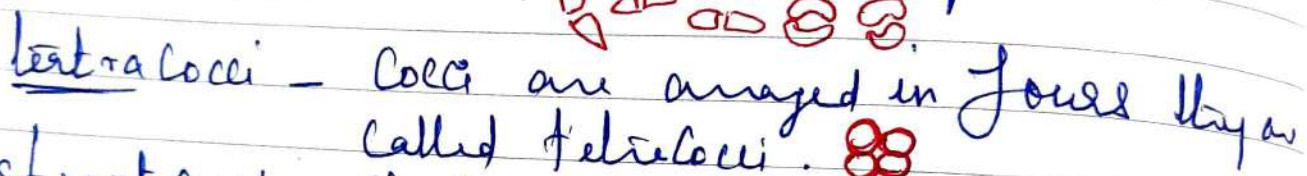 tertracocci - Cocci are arraged in fours they are
called tetracocci.